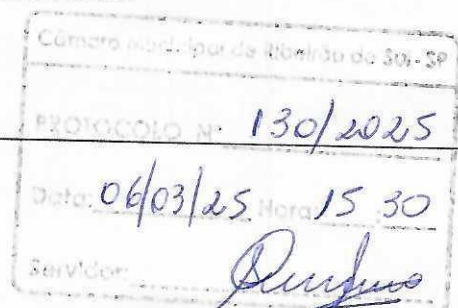 Câmara Municipal de Ribeirão do Sul-SP
PROTOCOLO Nº 130/2025
Data: 06/03/25 Hora: 15 30
Servidor: